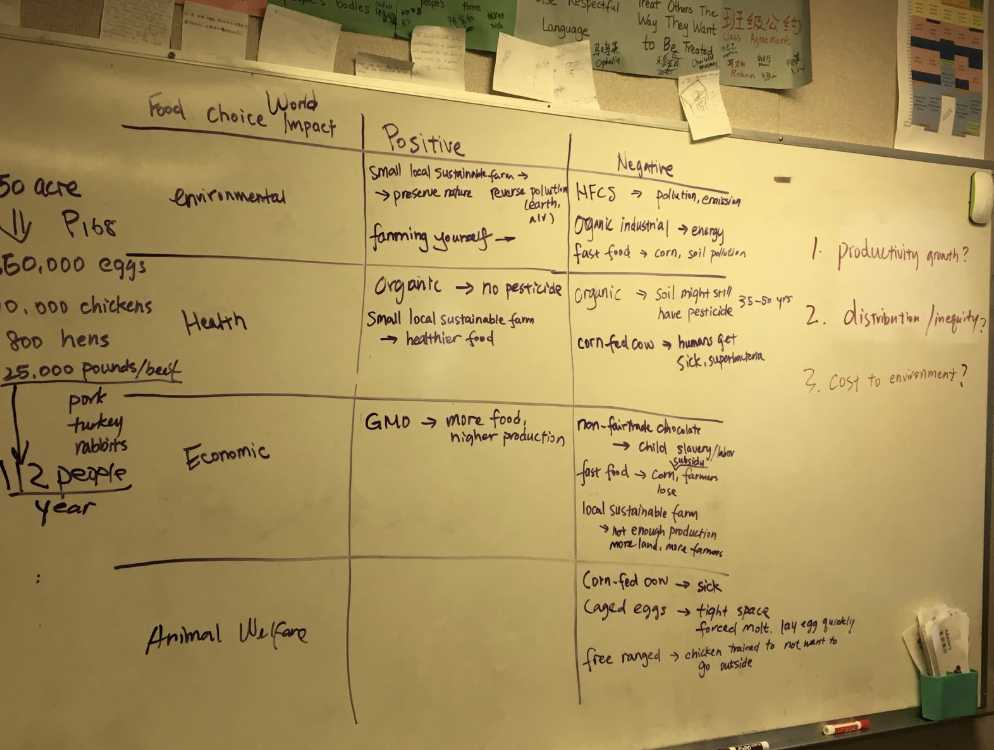 people's bodies
people's
time
Use Respectful
Language
Treat Others The
Way They Want
to Be Treated
班級公約
Class Agreement
Ophelia
Robin
Food Choice World
Impact
Positive
Negative
50 acre
P168
50,000 eggs
0,000 chickens
800 hens
25,000 pounds/beef
pork
turkey
rabbits
12 people
year
environmental
Small local sustainable farm →
→ preserve nature reverse pollution
(earth,
air)
farming yourself →
HFCS → pollution, emission
Organic industrial → energy
fast food → corn, soil pollution
Health
Organic → no pesticide
Small local sustainable farm
→ healthier food
Organic → Soil might still 35-50 yrs
have pesticide
corn-fed cow → humans get
sick, superbacteria
Economic
GMO → more food,
higher production
non-fairtrade chocolate
→ child slavery/labor
subsidy
fast food → corn, farmers
lose
local sustainable farm
→ not enough production
more land, more farmers
Animal Welfare
Corn-fed cow → sick
Caged eggs → tight space
forced molt. lay egg quickly
free ranged → chicken trained to not want to
go outside
1. productivity growth?
2. distribution/inequity?
3. cost to environment?